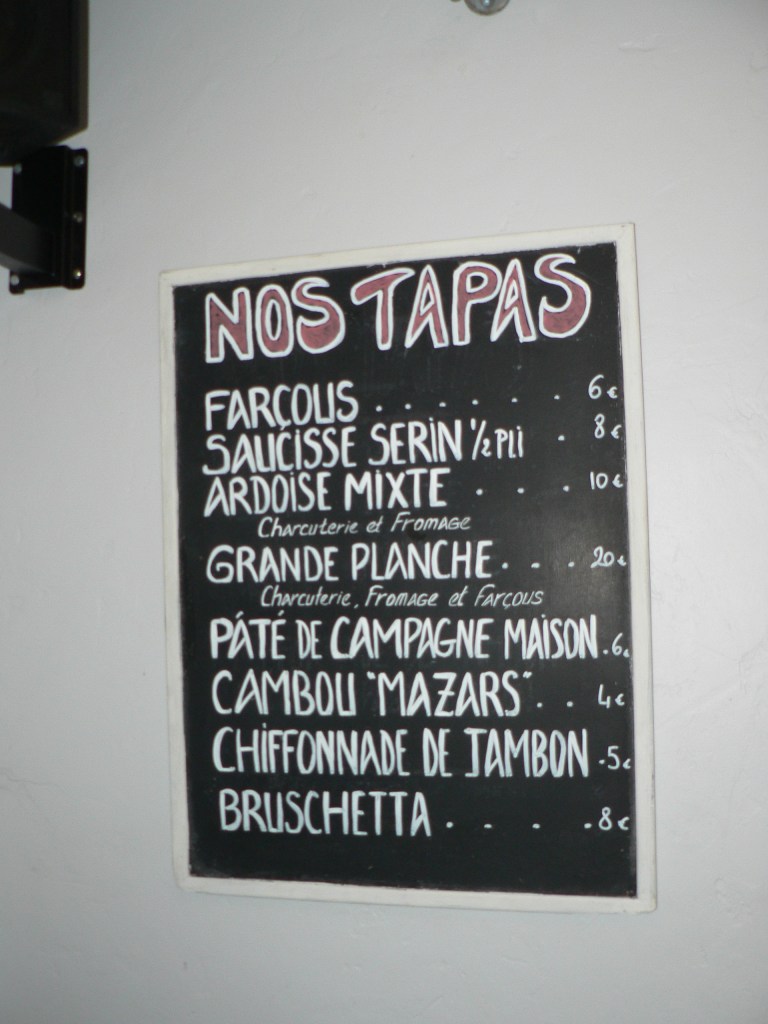 NOS TAPAS
FARÇOUS . . . . . . 6€
SAUCISSE SERIN 1/2 PLI . 8€
ARDOISE MIXTE . . . 10€
Charcuterie et Fromage
GRANDE PLANCHE . . . 20€
Charcuterie, Fromage et Farçous
PÂTÉ DE CAMPAGNE MAISON . 6€
CAMBOU "MAZARS" . . 4€
CHIFFONNADE DE JAMBON . 5€
BRUSCHETTA . . . . 8€